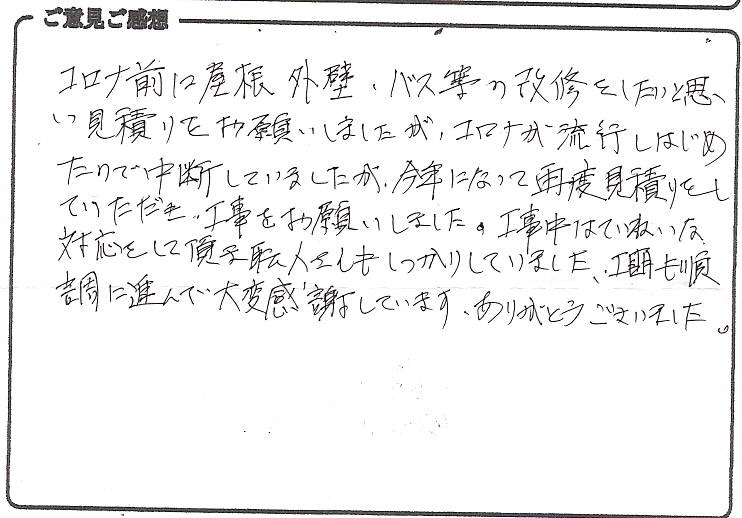 ご意見ご感想
コロナ前に屋根 外壁、バス等の改修をしたいと思い
い見積りをお願いしましたが、コロナが流行しはじめ
たので中断していましたが、今年になって再度見積りをし
ていただき、工事をお願いしました。工事中はていねいな
対応をして頂き職人さんもしっかりしていました、工期も順
調に進んで大変感謝しています、ありがとうございました。